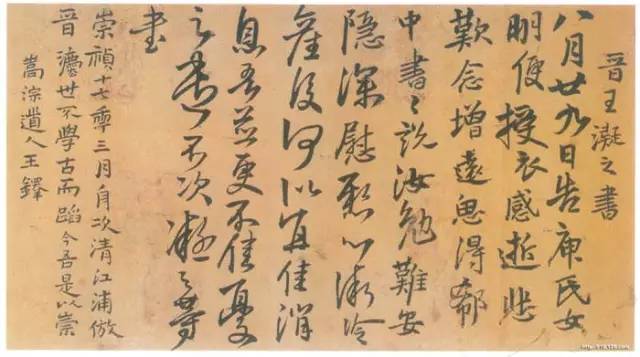 晉王凝之書
八月廿九日告庾氏女
明便授衣感逝悲
歎念增遠思得郗
中書〻說汝勉難安
隱深慰懸心漸冷
産後何以宜佳消
息吾並更不佳憂
之 不次凝之等
書
崇禎十七季三月舟次清江浦倣
晉灋世不學古而蹈今吾是以崇
嵩淙道人王鐸